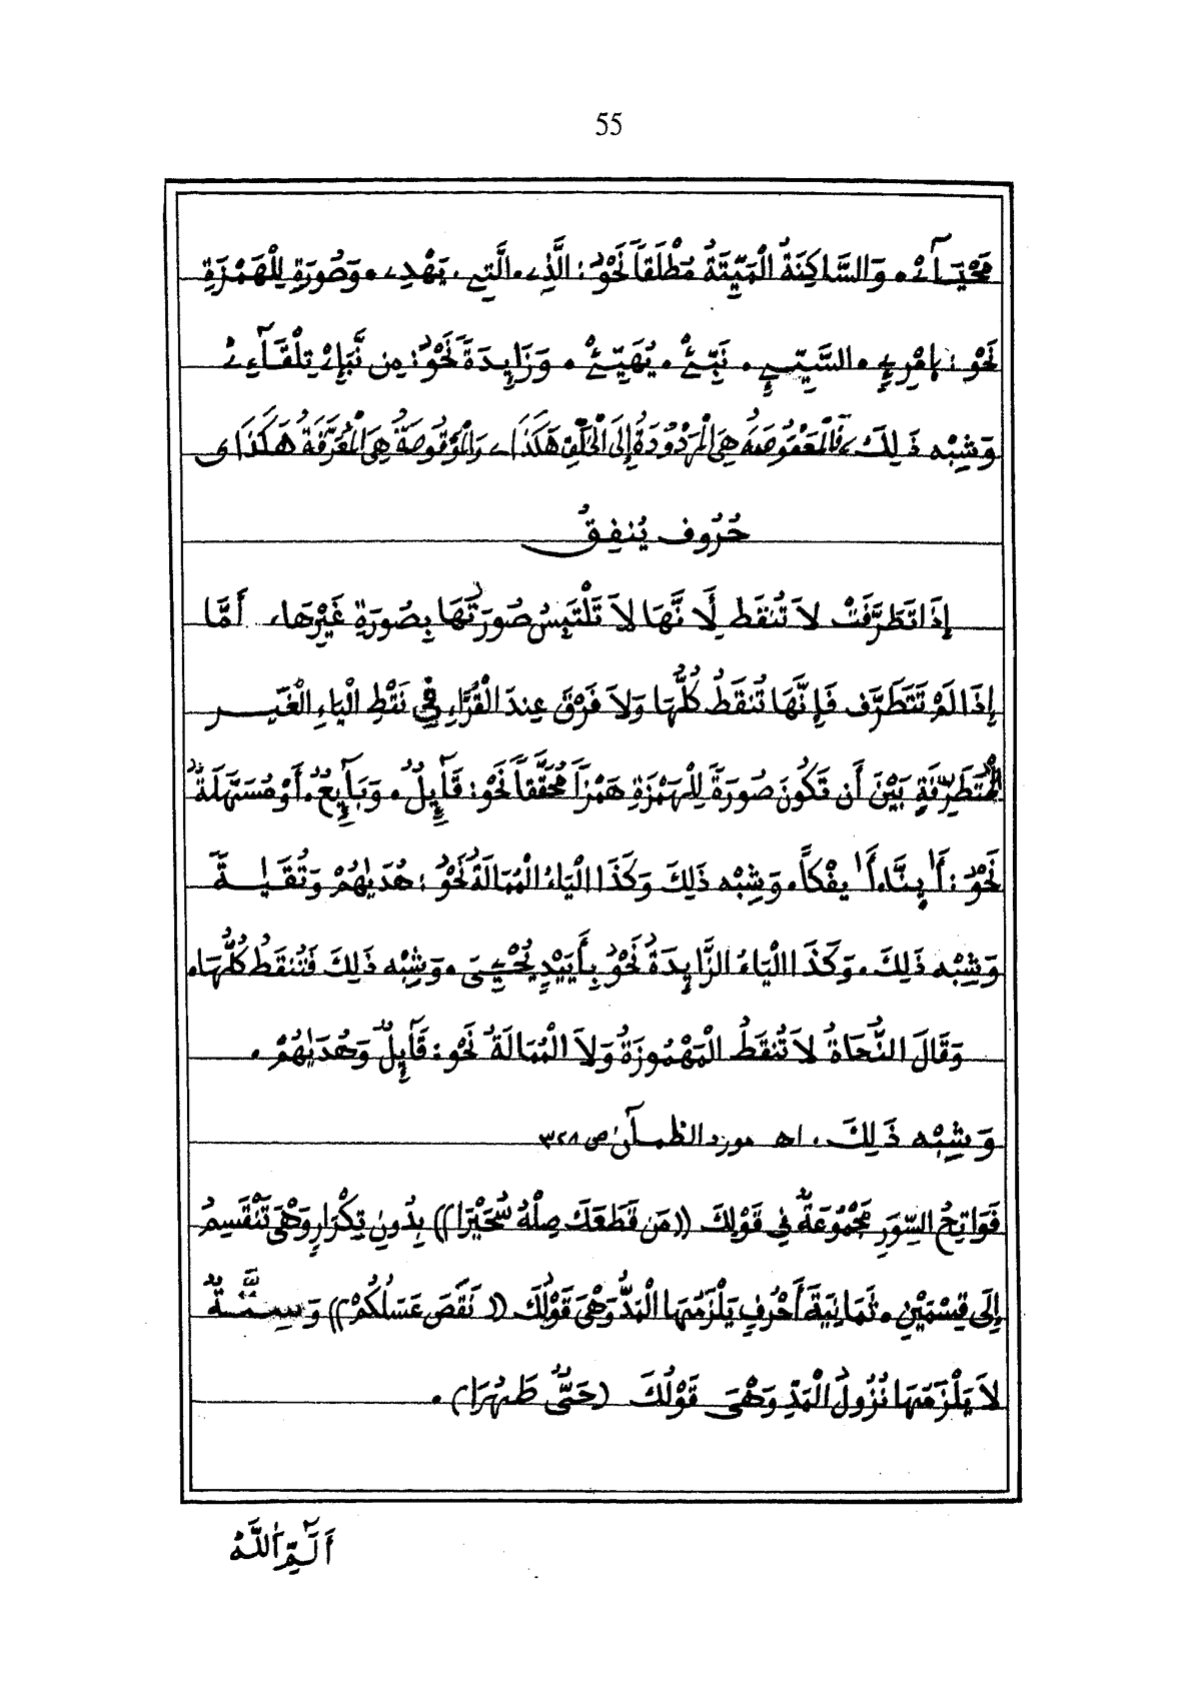 55
مَحْيَآءَے. وَالسَّاكِنَةُ الْمَيِّتَةُ مُطْلَقاً نَحْوُ: الَّذِے. الَّتِے. يَهْدِے. وَصُورَةِ لِلْهَمْزَةِ
نَحْوُ: اِمْرِئٍ. السَّيِّئِ. نَبِّئْ. يُهَيِّئْ. وَزَايِدَةً نَحْوُ: مِن نَّبَإِےْ تِلْقَآءِےْ
وَشِبْهِ ذَلِكَ، فَالْمَعْقُوصَةُ هِيَ الْمَرْدُودَةُ إِلَى الْخَلْفِ هَكَذَا ے وَالْمَوْقُوصَةُ هِيَ الْمُعَرَّقَةُ هَكَذَا ى
حُرُوف يُنفِقُ
إِذَا تَطَرَّفَتْ لاَ تُنقَط لِأَنَّهَا لاَ تَلْتَبِسُ صُورَتُهَا بِصُورَةِ غَيْرِهَا، أَمَّا
إِذَا لَمْ تَتَطَرَّف فَإِنَّهَا تُنقَطُ كُلُّهَا وَلاَ فَرْقَ عِندَ الْقُرَّاءِ فِي نَقْطِ الْيَاءِ الْغَيْر
الْمُتَطَرِّفَةِ بَيْنَ أَن تَكُونَ صُورَةً لِلْهَمْزَةِ هَمْزاً مُحَقَّقاً نَحْوُ: قَآئِلٌ. وَبَآئِعٌ. أَوْ مُسَهَّلَةً
نَحْوُ: أَا۟ينَّا. أَا۟يفْكاً. وَشِبْهِ ذَلِكَ وَكَذَا الْيَاءُ الْمُمَالَةُ نَحْوُ: هُدَيٰهُمْ وَتُقَيٰةً
وَشِبْهِ ذَلِكَ. وَكَذَا الْيَاءُ الزَّايِدَةُ نَحْوُ بِأَيَيْدٍ يُحْيِيَ. وَشِبْهِ ذَلِكَ فَتُنقَطُ كُلُّهَا.
وَقَالَ النُّحَاةُ لاَ تُنقَطُ الْمَهْمُوزَةُ وَلاَ الْمُمَالَةُ نَحْوُ: قَآئِلٌ وَهُدَيٰهُمْ.
وَشِبْهِ ذَلِكَ. اهـ مورد الظمآن ص ٣٢٨
فَوَاتِحُ السِّوَرِ مَجْمُوعَةٌ فِي قَوْلِكَ ((مَن قَطَعَكَ صِلْهُ سُحَيْرَا)) بِدُونِ تِكْرَارٍ وَهْيَ تَنْقَسِمُ
إِلَى قِسْمَيْنِ. ثَمَانِيَةَ أَحْرُفٍ يَلْزَمُهَا الْمَدُّ وَهْيَ قَوْلُكَ ((نَقَصَ عَسَلُكُمْ)) وَسِتَّةٌ
لاَ يَلْزَمُهَا نُزُولُ الْمَدِّ وَهْيَ قَوْلُكَ (حَيٌّ طَهُرَا).
أَلَمِّٓ اَللَّهُ